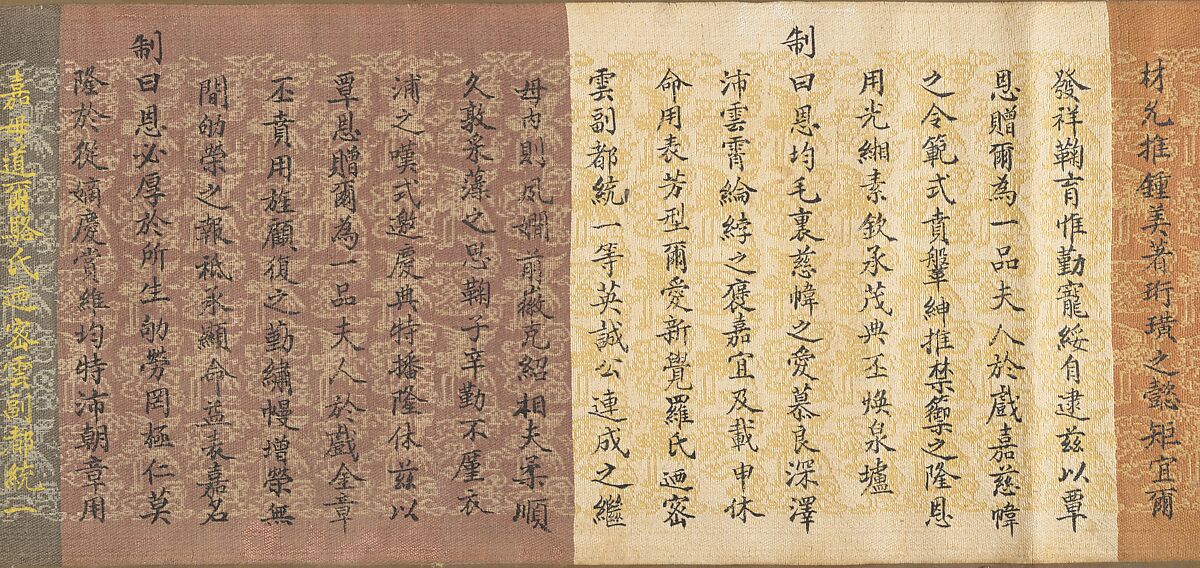 材允推鍾美著珩璜之懿矩宜爾
發祥鞠育惟勤寵綏自逮茲以覃
恩贈爾為一品夫人於戲嘉慈幃
之令範式賁鞶紳推禁籞之隆恩
用光緗素欽承茂典丕煥泉壚
制曰恩均毛裏慈幃之愛慕良深澤
沛雲霄綸綍之褒嘉宜及載申休
命用表芳型爾愛新覺羅氏迺密
雲副都統一等英誠公連成之繼
母內則夙嫻前徽克紹相夫柔順
久敦采藻之思鞠子辛勤不廑衣
浦之嘆式邀慶典特播隆休茲以
覃恩贈爾為一品夫人於戲金章
丕賁用旌顧復之勤繡幰增榮無
間劬榮之報祗承顯命益表嘉名
制曰恩必厚於所生劬勞罔極仁莫
隆於從嫡慶賞維均特沛朝章用
嘉母道爾駱氏迺密雲副都統一